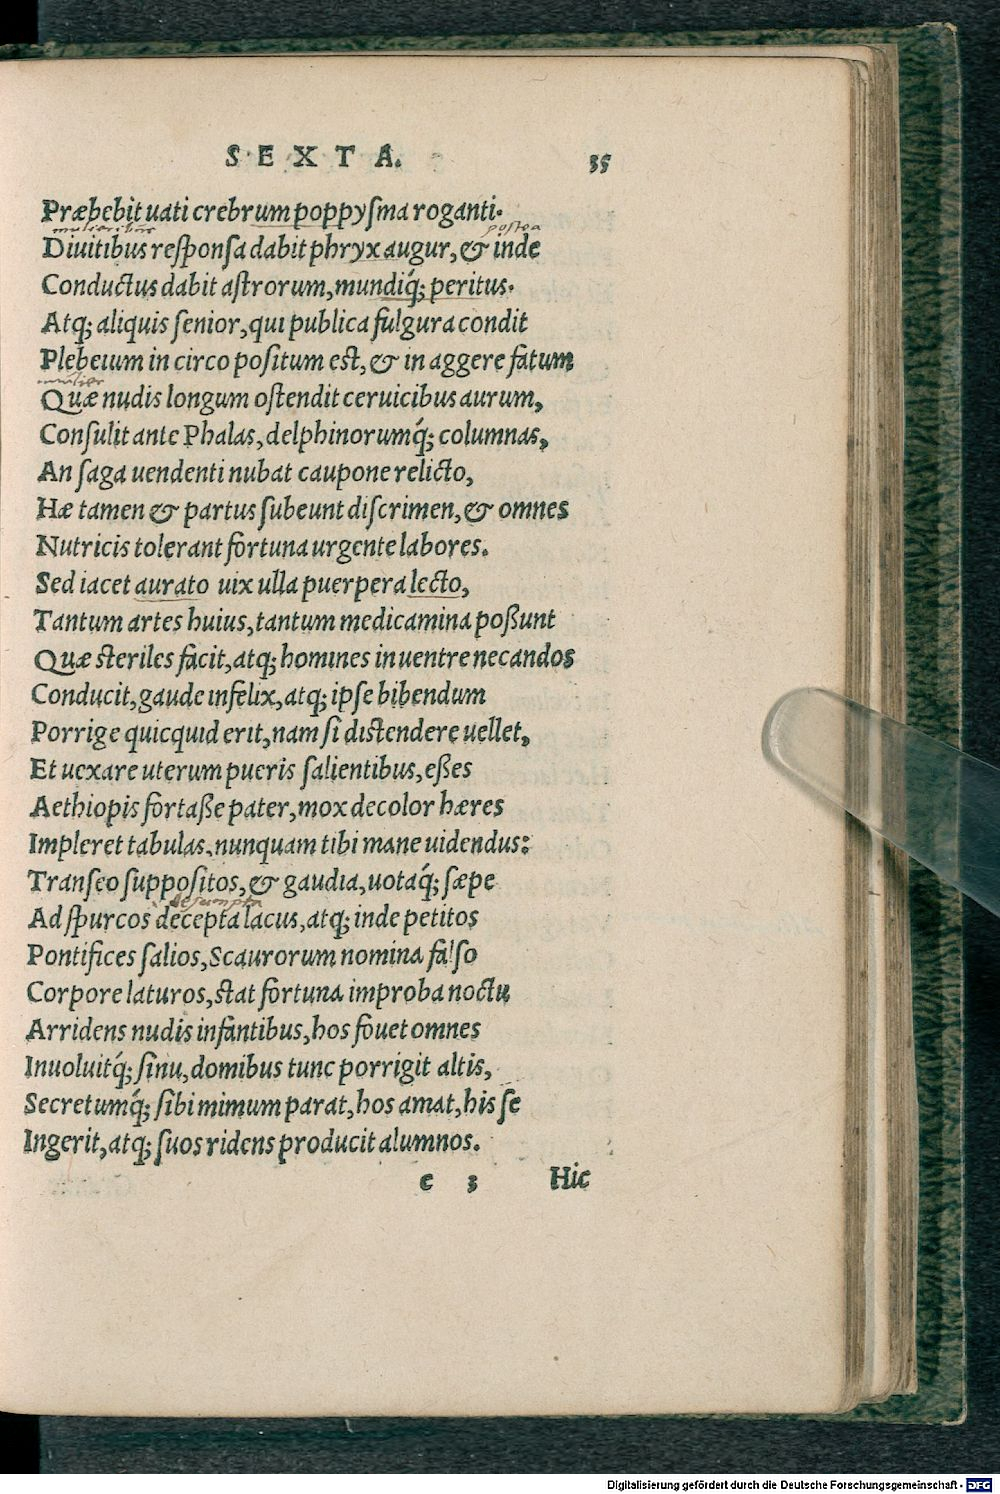 SEXTA. 35
Præbebit uati crebrum poppysma roganti.
mulieribus postea
Diuitibus responsa dabit phryx augur, & inde
Conductus dabit astrorum, mundiq́; peritus.
Atq; aliquis senior, qui publica fulgura condit
Plebeium in circo positum est, & in aggere fatum
mulier
Quæ nudis longum ostendit ceruicibus aurum,
Consulit ante Phalas, delphinorumq́; columnas,
An saga uendenti nubat caupone relicto,
Hæ tamen & partus subeunt discrimen, & omnes
Nutricis tolerant fortuna urgente labores.
Sed iacet aurato uix ulla puerpera lecto,
Tantum artes huius, tantum medicamina poßunt
Quæ steriles facit, atq; homines in uentre necandos
Conducit, gaude infelix, atq; ipse bibendum
Porrige quicquid erit, nam si distendere uellet,
Et uexare uterum pueris salientibus, eßes
Aethiopis fortaße pater, mox decolor hæres
Impleret tabulas, nunquam tibi mane uidendus:
Transeo suppositos, & gaudia, uotaq́; sæpe
desumpta
Ad spurcos decepta lacus, atq; inde petitos
Pontifices salios, Scaurorum nomina falso
Corpore laturos, stat fortuna improba noctu
Arridens nudis infantibus, hos fouet omnes
Inuoluitq́; sinu, domibus tunc porrigit altis,
Secretumq́; sibi mimum parat, hos amat, his se
Ingerit, atq; suos ridens producit alumnos.
e 3 Hic
Digitalisierung gefördert durch die Deutsche Forschungsgemeinschaft - DFG